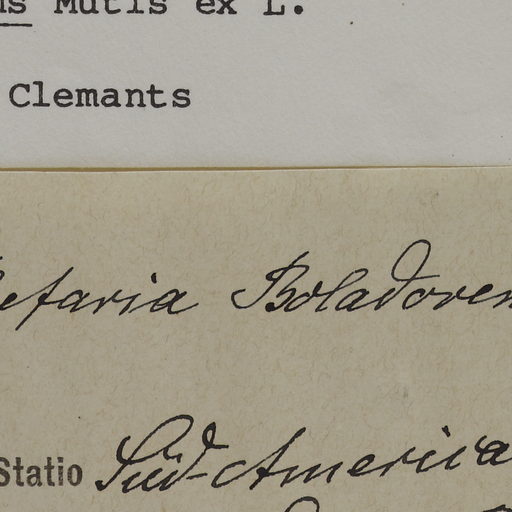 ns Mutis ex L.
Clemants
efaria Boladoren
Statio Süd-America